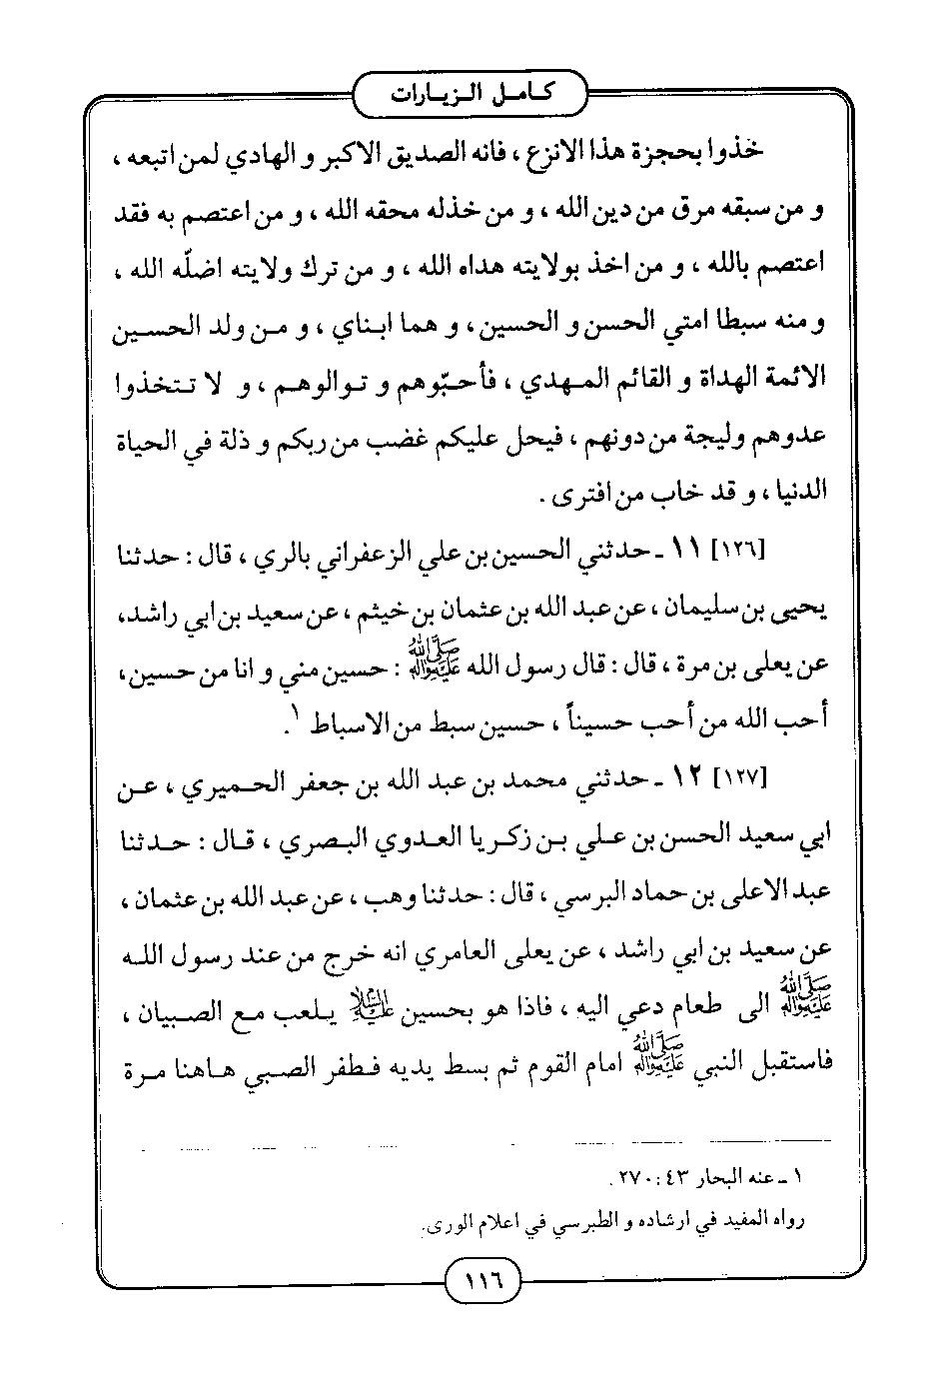 كامل الزيارات
خذوا بحجزة هذا الانزع ، فانه الصديق الاكبر و الهادي لمن اتبعه ،
و من سبقه مرق من دين الله ، و من خذله محقه الله ، و من اعتصم به فقد
اعتصم بالله ، و من اخذ بولايته هداه الله ، و من ترك ولايته اضلّه الله ،
و منه سبطا امتي الحسن و الحسين ، و هما ابناي ، و من ولد الحسين
الائمة الهداة و القائم المهدي ، فأحبّوهم و توالوهم ، و لا تتخذوا
عدوهم وليجة من دونهم ، فيحل عليكم غضب من ربكم و ذلة في الحياة
الدنيا ، و قد خاب من افترى .
[١٢٦] ١١ ـ حدثني الحسين بن علي الزعفراني بالري ، قال : حدثنا
يحيى بن سليمان ، عن عبد الله بن عثمان بن خيثم ، عن سعيد بن ابي راشد،
عن يعلى بن مرة ، قال : قال رسول الله صَلَّى اللهُ عَلَيْهِ وَآلِهِ : حسين مني و انا من حسين،
أحب الله من أحب حسيناً ، حسين سبط من الاسباط ١.
[١٢٧] ١٢ ـ حدثني محمد بن عبد الله بن جعفر الحميري ، عن
ابي سعيد الحسن بن علي بن زكريا العدوي البصري ، قال : حدثنا
عبد الاعلى بن حماد البرسي ، قال : حدثنا وهب ، عن عبد الله بن عثمان ،
عن سعيد بن ابي راشد ، عن يعلى العامري انه خرج من عند رسول الله
صَلَّى اللهُ عَلَيْهِ وَآلِهِ الى طعام دعي اليه ، فاذا هو بحسين عليه السلام يلعب مع الصبيان ،
فاستقبل النبي صَلَّى اللهُ عَلَيْهِ وَآلِهِ امام القوم ثم بسط يديه فطفر الصبي هاهنا مرة
١ ـ عنه البحار ٤٣ : ٢٧٠ .
رواه المفيد في ارشاده و الطبرسي في اعلام الورى.
١١٦